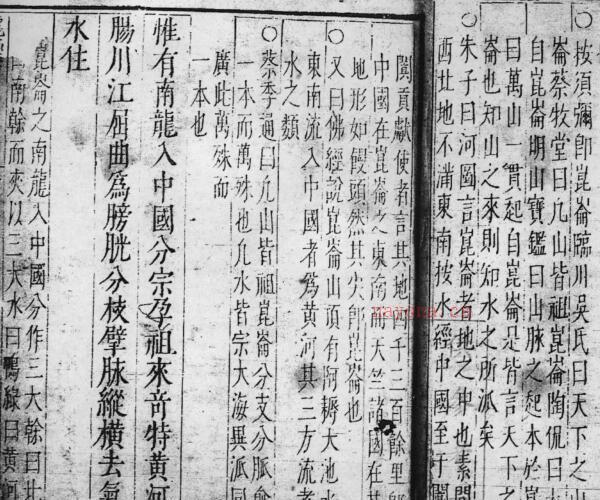 ○按須彌卽崑崙臨川吳氏曰天下之山
崙蔡牧堂曰凡山皆祖崑崙陶侃曰
自崑崙明山寶鑑曰山脉之起本於崑
曰萬山一貫起自崑崙是皆言天下之
崙也知山之來則知水之所派矣
○朱子曰河圖言崑崙者地之中也素問
西北地不滿東南按水經中國至于闐
闐貢獻使者言其地四千三百餘里
中國在崑崙之東南而天竺諸國在其
地形如饅頭然其尖卽崑崙也
○又曰佛經說崑崙山頂有阿耨大池水
東南流入中國者爲黃河其三方流者
水之類
○蔡季通曰凡山皆祖崑崙分支分脉愈
一本而萬殊也凡水皆宗大海異派
廣此萬殊而
一本也
惟有南龍入中國分宗孕祖來奇特黃河
腸川江屈曲爲膀胱分枝擘脉縱橫去氣
水住
崑崙之南龍入中國分作三大幹曰北
南幹而夾以三大水曰鴨綠曰黃河